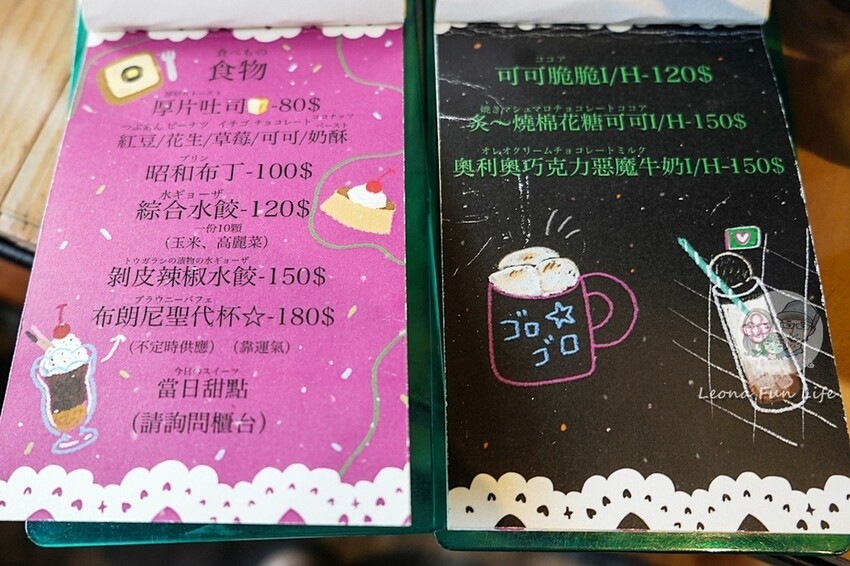 食べもの
食物
厚片吐司-80$
つぶあん ピーナツ イチゴ チョコレート ココナッツペースト
紅豆/花生/草莓/可可/奶酥
プリン
昭和布丁-100$
水ギョーザ
綜合水餃-120$
一份10顆
(玉米、高麗菜)
トウガラシの漬物の水ギョーザ
剝皮辣椒水餃-150$
ブラウニーパフェ
布朗尼聖代杯☆-180$
(不定時供應) (靠運氣)
今日のスイーツ
當日甜點
(請詢問櫃台)
ココア
可可脆脆I/H-120$
焼きマシュマロチョコレートココア
炙～燒棉花糖可可I/H-150$
オレオクリームチョコレートミルク
奧利奧巧克力惡魔牛奶I/H-150$
ゴロ☆
ゴロ
Leona Fun Life